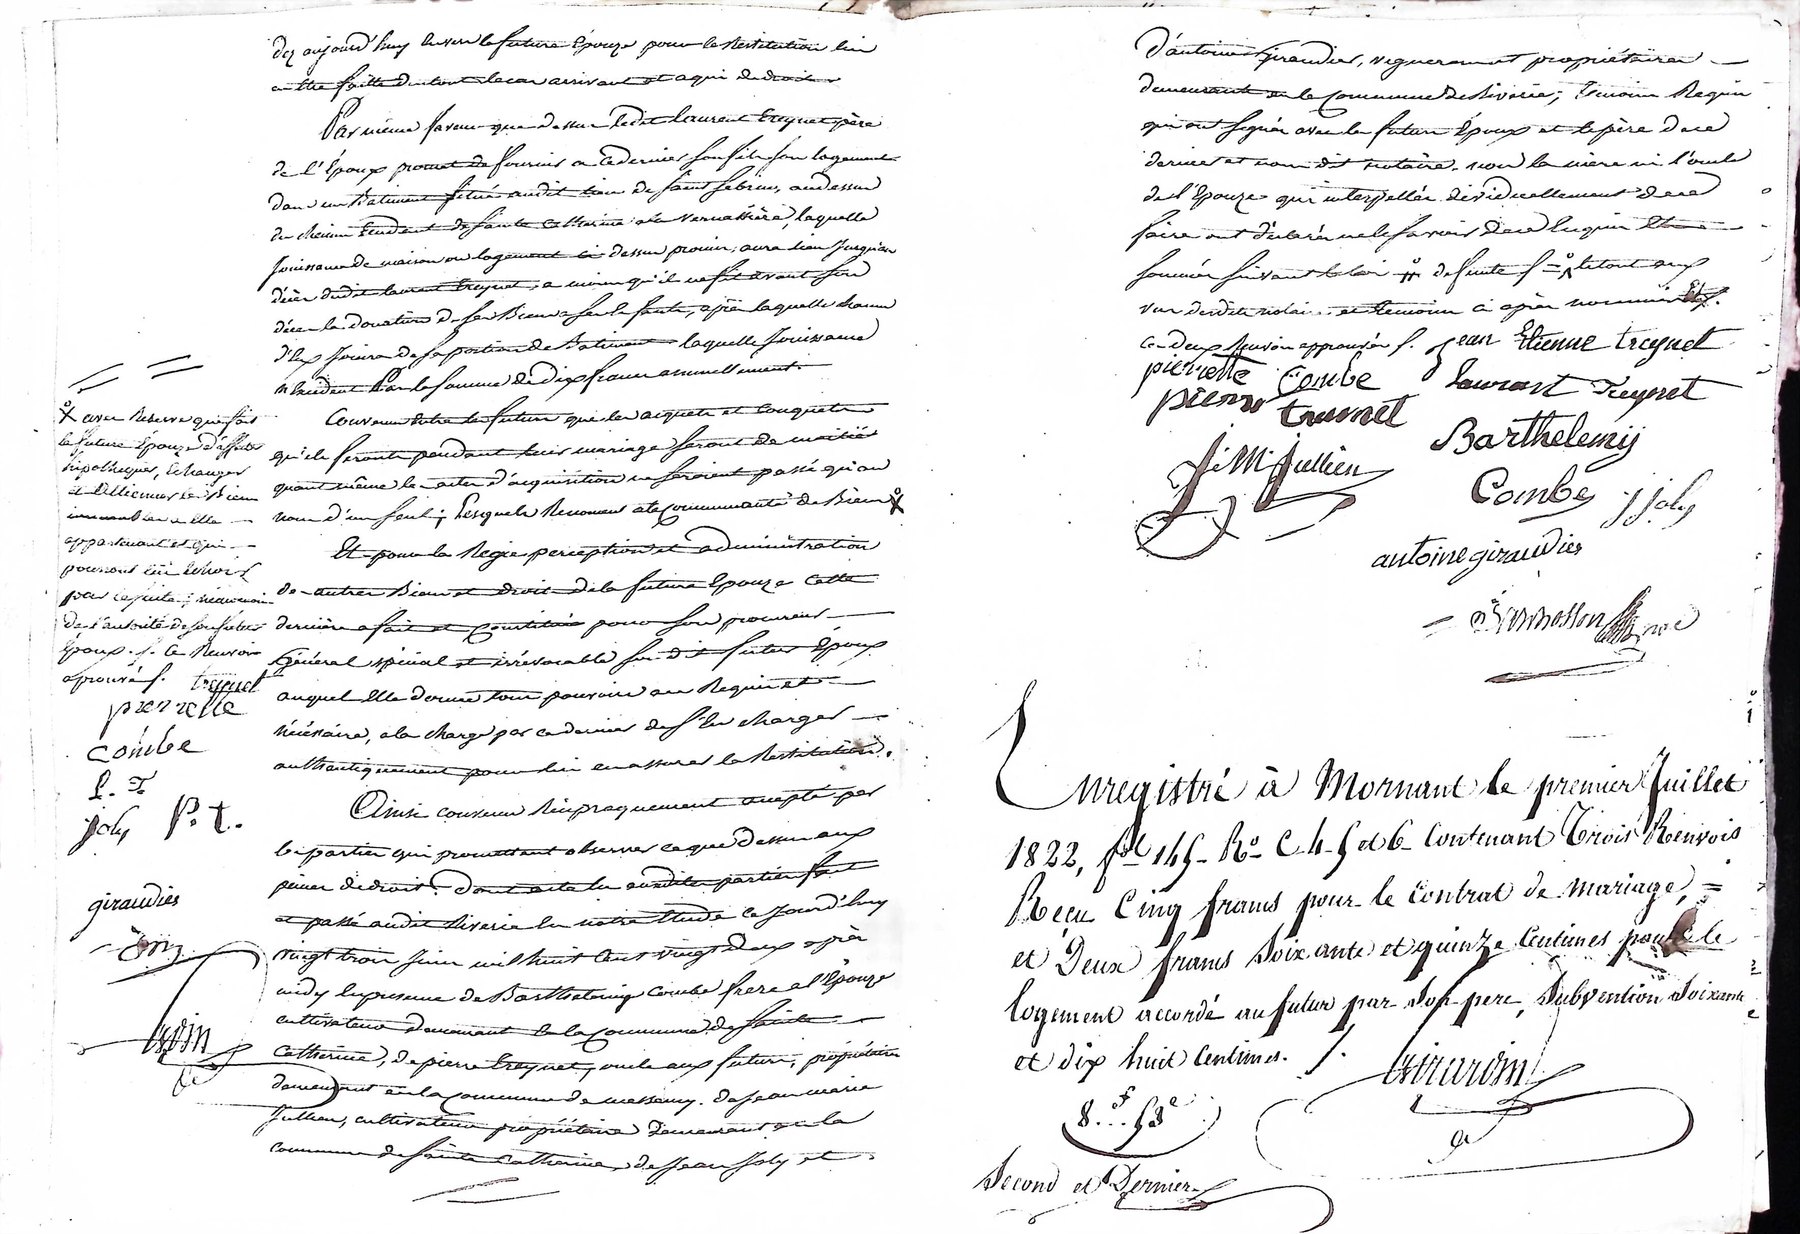 dez aujourd'huy envers la future Epouze pour la Restitution lui
en être faitte du tout le cas arrivant et a qui de droit.
Par même faveur que dessus ledit Laurent Treynet père
de l'Epoux promet de fournir a ce dernier son fils son logement
dans un Batiment situé audit lieu de Saint Sebrin, audessus
du chemin tendant de Sainte Catherine a la vernassière, laquelle
Jouissance de maison ou logement ci dessus promis, aura lieu jusqu'au
décès dudit Laurent Treynet, a moins qu'il ne fit avant son
décès la donation de ses Biens a ses Enfants, après laquelle chacun
d'Eux Jouira de sa portion de Batiment laquelle Jouissance
n'excedent Pas la somme de dix francs annuellement.
Convenu entre les futurs que les acquets et conquets
qu'ils feront pendant leur mariage seront de moitié
quant même les actes d'acquisition ne seroient passé qu'au
nom d'un seul; lesquels Renoncent a la Communauté de Biens
Et pour la Regie perception et administration
des autres Biens et droits de la future Epouze cette
dernière a fait et constitué pour son procureur
Général spécial et irrévocable son dit futur Epoux
auquel Elle donne tous pouvoirs au Requis et
nécessaire, a la charge par ce dernier de s'en charger
authentiquement pour lui en assurer la Restitution.
Ainsi convenu réciproquement accepté par
les parties qui promettent observer ce que dessus aux
peines de droit. Dont acte les susdites parties fait
et passé audit Riverie en notre Etude ce Jourd'huy
vingt trois Juin mil huit Cent vingt deux après
midy En presence de Barthelemy Combe frere a l'Epouze
cultivateur demeurant en la Commune de Sainte
Catherine, de pierre Treynet, oncle aux futurs, propriétaire
demeurant en la Commune de messimy. de Jean marie
Jullien, cultivateur propriétaire demeurant en la
commune de Sainte Catherine, de Jean Joly et
avec Reserve que fait
la future Epouze d'affecter
hipothequer, Echanger
et Alliener les Biens
immeubles a Elle
appartenant et qui
pourront lui Echoir
par la suite; neanmoins
de l'autorité de son futur
Epoux. f. Ce Renvoi
aprouvé f. treynet
pierrette
combe
L. T
joly P. t.
giraudier
Girardin
d'antoine Giraudier, vigneron et propriétaire
demeurants en la Commune de Riverie; temoins Requis
qui ont signés avec les futurs Epoux et le père de ce
dernier et nous dit notaire. non la mère ni l'oncle
de l'Epouze qui interpellés individuellement de ce
faire ont déclarés ne le savoir de ce Enquis Et
sommés suivant la loi de suite f letout aux
vues desdits notaire et temoins ci après nommés
ces deux Renvois approuvés f. jean Etienne treynet
pierrette Combe Laurant Treynet
pierre treinet
J: M: Jullien Barthelemy
Combe J Joly
antoine giraudier
Enregistré à Mornant le premier Juillet
1822, fol 145 Ro C 4 5 et 6 Contenant Trois Renvois
Reçu Cinq francs pour le Contrat de mariage,
et Deux francs Soixante et quinze Centimes pour le
logement accordé au futur par Son pere, Subvention Soixante
et dix huit Centimes. f.
Girardin
8 f..53 c
Second et Dernier